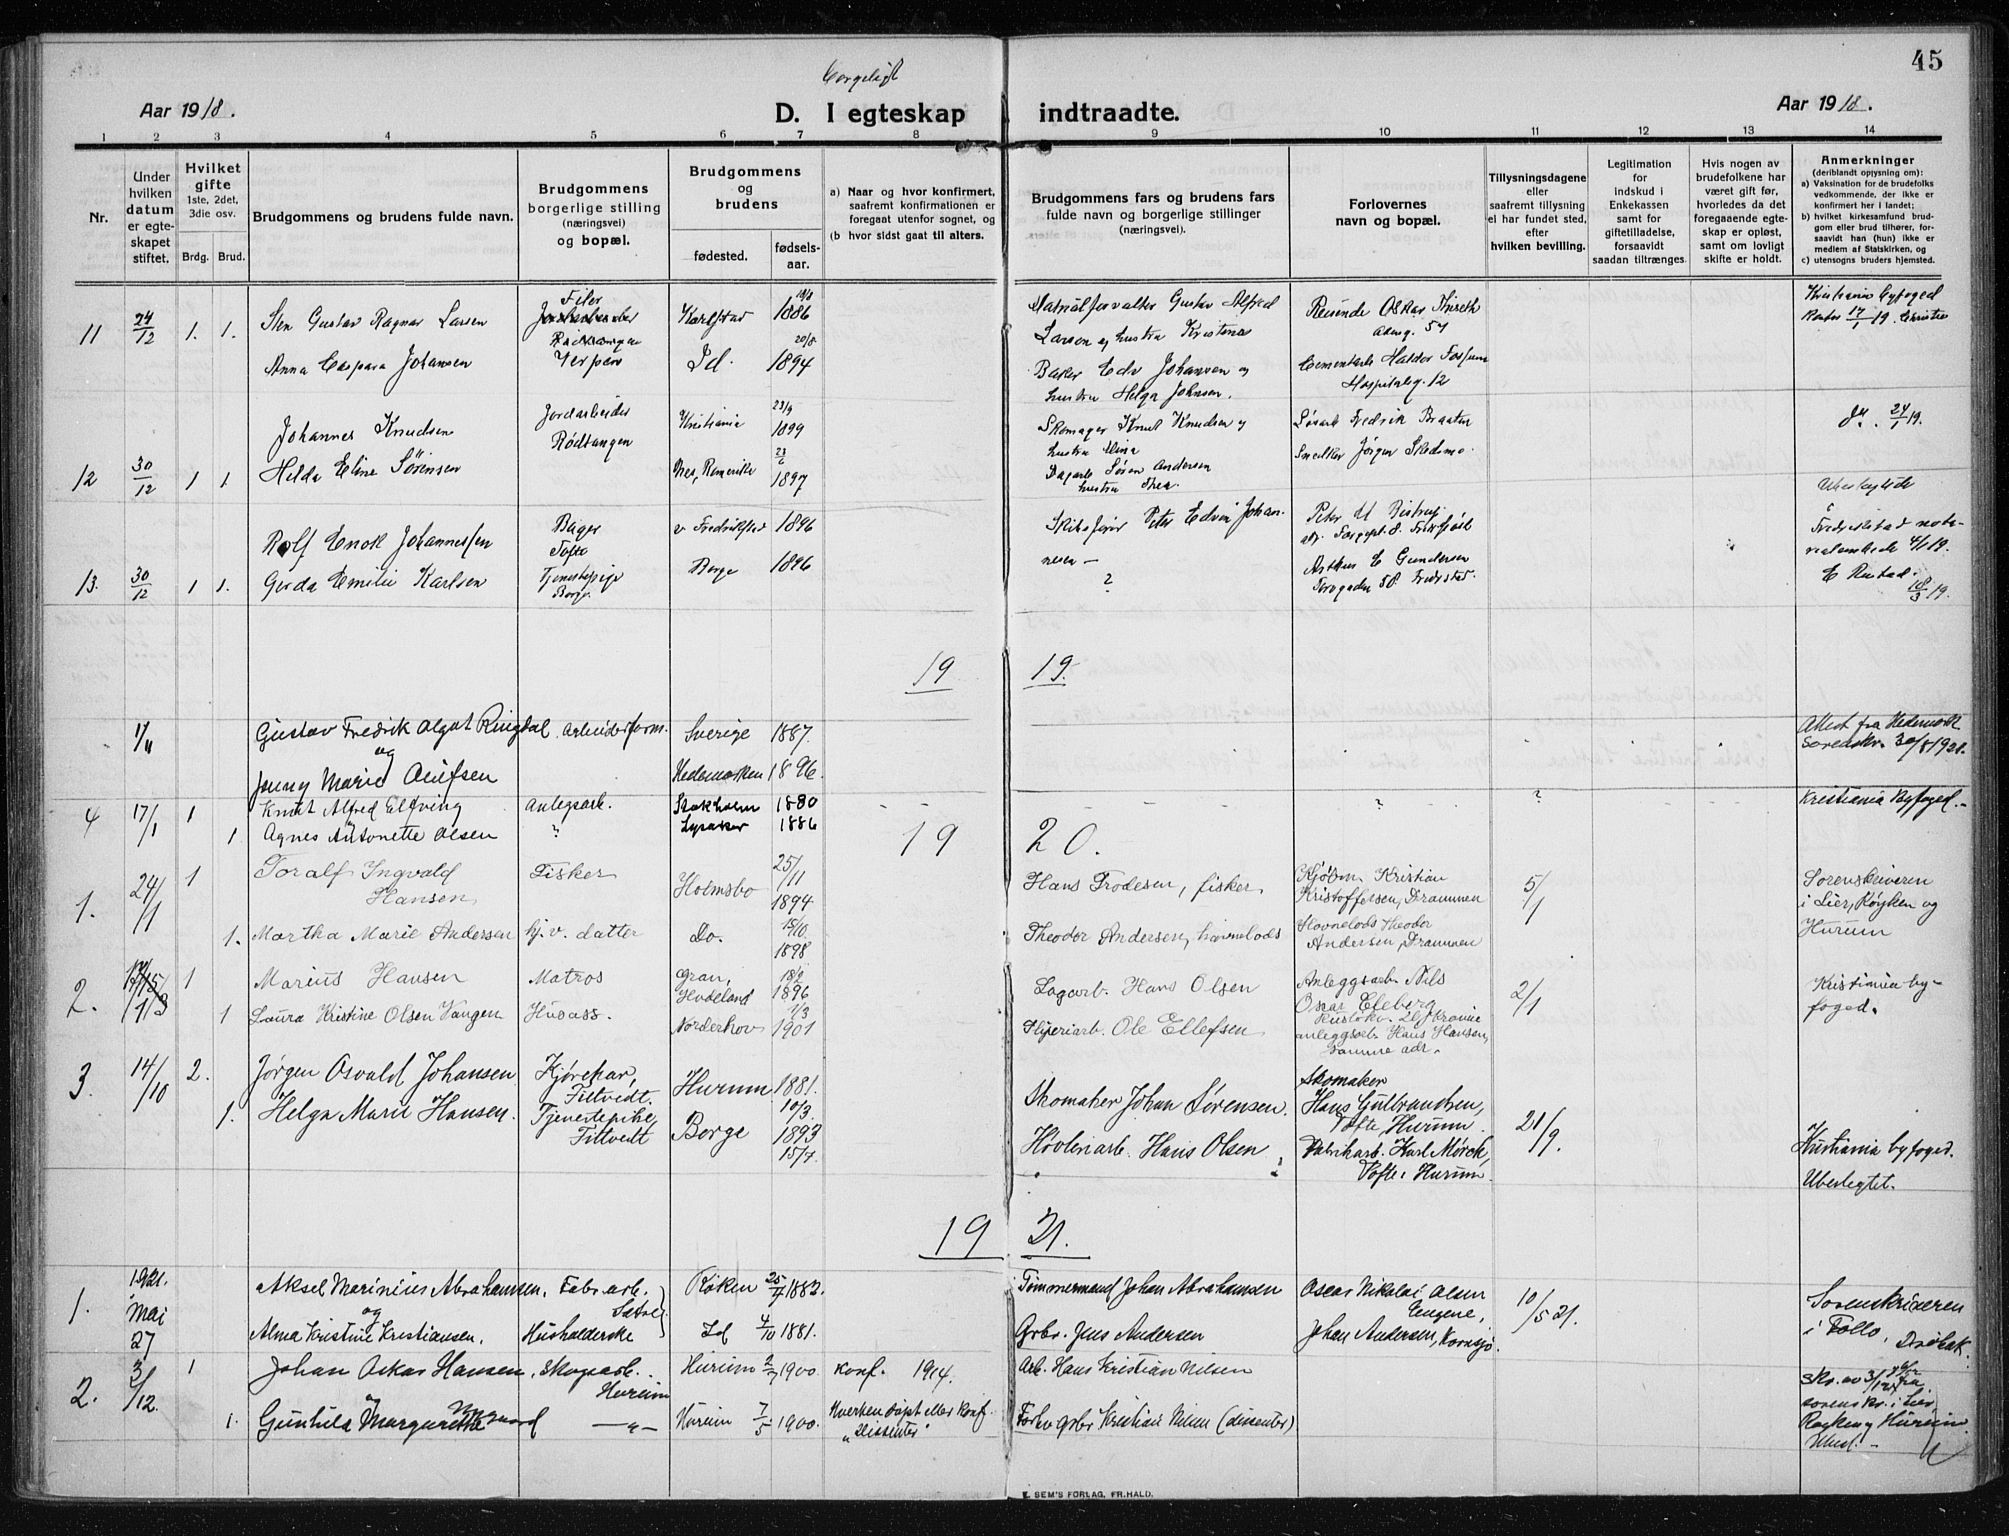 45
borgeligt
Aar 1918.
D. I egteskap indtraadte.
Aar 1918.
1 2 3 4 5 6 7 8 9 10 11 12 13 14
Nr.
Under hvilken datum er egteskapet stiftet.
Hvilket gifte 1ste, 2det, 3die osv.
Brdg. Brud.
Brudgommens og brudens fulde navn.
Brudgommens borgerlige stilling (næringsvei) og bopæl.
Brudgommens og brudens
fødested. fødselsaar.
a) Naar og hvor konfirmert, saafremt konfirmationen er foregaat utenfor sognet, og
(b hvor sidst gaat til alters.
Brudgommens fars og brudens fars fulde navn og borgerlige stillinger (næringsvei).
Forlovernes navn og bopæl.
Tillysningsdagene eller saafremt tillysning ei har fundet sted, efter hvilken bevilling.
Legitimation for indskud i Enkekassen samt for giftetilladelse, forsaavidt saadan tiltrænges.
Hvis nogen av brudefolkene har været gift før, hvorledes da det foregaaende egteskap er opløst, samt om lovligt skifte er holdt.
Anmerkninger (deriblandt opjysning om):
a) Vaksination for de brudefolks vedkommende, der ikke er konfirmert her i landet;
b) hvilket kirkesamfund brudgom eller brud tilhører, forsaavidt han (hun) ikke er medlem af Statskirken, og
c) utensogns bruders hjemsted.
11 24/12 1. 1. Sten Gustav Ragnar Larsen
Filer
Karlstad 1886
Matrialforvalter Gustav Alfred
Larsen og hustru Kristina
Reisende Oskar
57
Kristiania byfoged
17/1 19. Christie
Anna Caspara Johansen
Id. 1894
Baker Edv Johansen og
hustru Helga Johnsen.
Cementarb Haldor Fossum
Hospitalsg. 12
12 30/12 1 1. Johannes Knudsen
Jordarbeider
Rødtangen
Kristiania 23/9 1899
Skomager Knut Knudsen og
hustru Elina
Løsarb Fredrik Braaten
24/1 19.
Helda Eline Sörensen
Nes, Romerike 23/6 1897
Dagarb Søren Andersen
hustru Thea.
Snedker Jørgen Skedsmo.
13. 30/12 1 1. Rolf Enok Johannessen
Bager
Tofte
v Fredrikstad 1896
Skibsfører Peter Edvin Johannesen —
Peter M Bistrup
Gerda Emilie Karlsen
Tjenestepige
Borge.
Borge 1896
?
Arthur E Gundersen
Torvgaden 58. Fredrstad.
Fredrikstad notarialembede 4/1 19.
E Rustad.
18/3 19.
19 19.
1/11 Gustav Fredrik Algot Ringdal
Arbeidsform.
Sverige 1887.
Attest fra Hedemark
Sorenskr. 30/8 1921.
og
Jenny Marie Olufsen
Hedemarken 1896.
4 17/1 1 Knut Alfred Elfving
Anlegsarb.
Stokholm 1880
?
?
Kristiania Byfoged.
1 Agnes Antonette Olsen
?
Lysaker 1886
19 20.
1. 24/1 1 Toralf Ingvald
Hansen,
Fisker
Holmsbo 25/11 1894
Hans Frodesen, fisker.
Kjøbm. Kristian
Kristoffersen, Drammen
5/1
Sorenskriveren
i Lier, Røyken og
Hurum
1. Martha Marie Andersen
hj. v. datter
Do. 15/10 1898
Theodor Andersen, havnelods
Havnelods Theodor
Andersen, Drammen
2. 1/3 1 Marius Hansen
Matros
Gran,
Hadeland 18/2 1896
Sagarb. Hans Olsen
Anleggsarb Nils
Oscar Eleberg
2/1
Kristiania byfoged.
1 Laura Kristine Olsen Vangen
Husass.
Norderhov 1/3 1901
Sliperiarb. Ole Ellefsen
anleggsarb. Hans Hansen,
samme adr.
3. 14/10 2. Jørgen Osvald Johansen
Kjørekar,
Filtvedt.
Hurum 1881. 10/3.
Skomaker Johan Sørensen.
Skomaker
Hans Gulbrandsen,
Tofte, Hurum.
21/9.
1. Helga Marie Hansen.
Tjenestepike,
Filtvedt
Borge 1893 15/7.
Høvleriarb. Hans Olsen
Fabrikarb. Karl Mørck,
Tofte i Hurum.
Kristiania byfoged.
Uberlegtet.
19 21.
1. 1921. Mai 27 Aksel Marinius Abrahamsen.
Fabr.arb.
Sætre
Røken 25/7 1883.
Tømmermand Johan Abrahamsen
Oscar Nikolai Olsen
Engene,
10/5 21.
Sorenskriveren
i Follo, Drøbak.
og
Alma Kristine Kristiansen.
Husholderske
Id 4/10 1881.
Grbr. Jens Andersen
Johan Andersen, Kornsjø.
2. 3/12. 1 Johan Oskar Hansen.
Skogsarb.
Hurum
Hurum 2/7 1900
konf. 1914.
Arb. Hans Kristian Nilsen
Skr. av 3/12 fra
sorenskr. i Lier,
Røyken og Hurum
1. Gunhila Margarethe
— " —
Hurum 7/5 1900.
Hverken døpt eller konf.
"Dissenter"
Forhv grbr Kristian Nilsen (dissenter)
E. SEM'S FORLAG, FR.HALD.